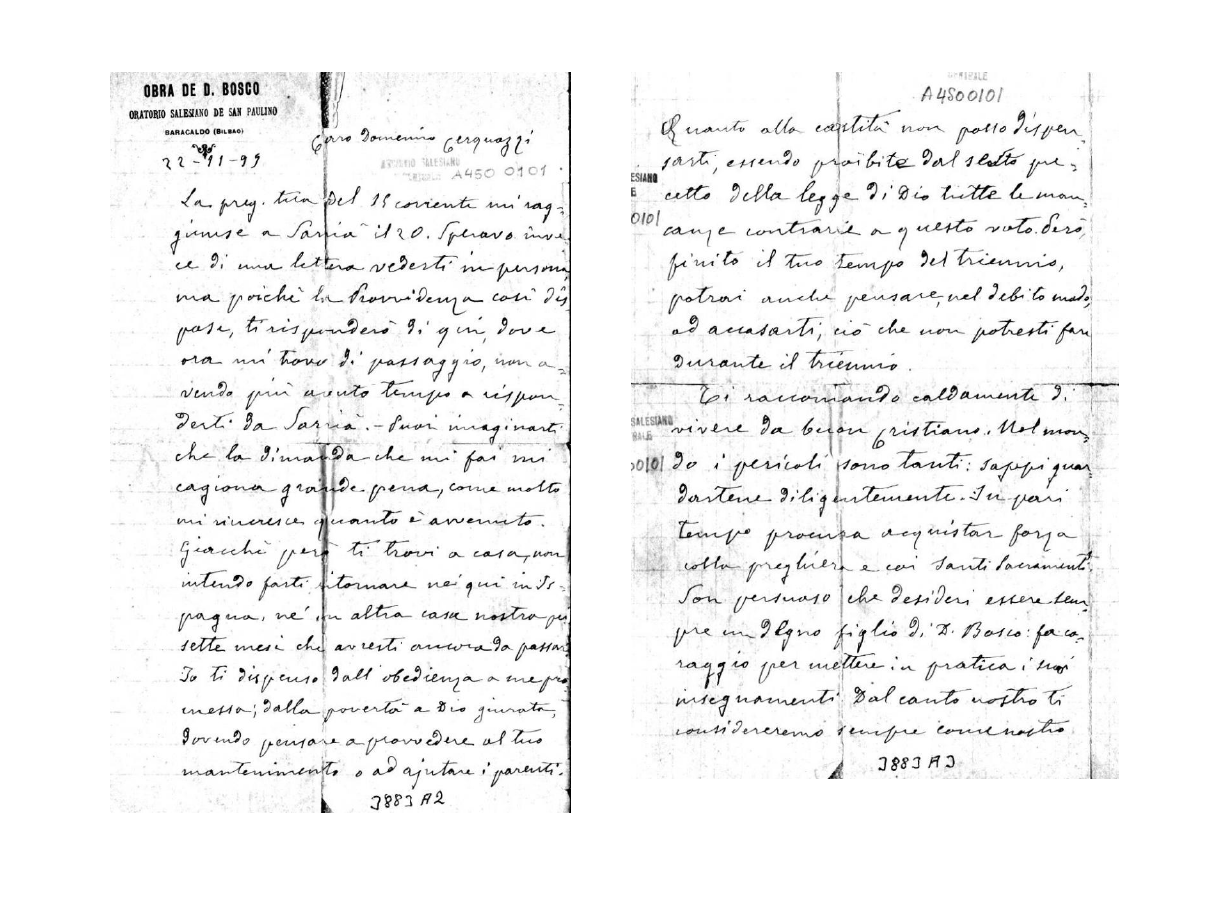 OBRA DE D. BOSCO
ORATORIO SALESIANO DE SAN PAULINO
BARACALDO (BILBAO)
22-11-99
Caro Domenico Cerquazzi
ARCHIVIO SALESIANO
CENTRALE A450 0101
La preg. tua del 15 corrente mi rag-
giunse a Sarrià il 20. Speravo inve-
ce di una lettera vederti in persona,
ma poichè la Provvidenza così dis
pose, ti risponderò di qui, dove
ora mi trovo di passaggio, non a-
vendo più avuto tempo a rispon-
derti da Sarrià. - Puoi imaginarti
che la dimanda che mi fai mi
cagiona grande pena, come molto
mi rincresce quanto è avvenuto.
Giacchè però ti trovi a casa, non
intendo farti ritornare nè qui in Is-
pagna, nè in altra casa nostra per
sette mesi che avresti ancora da passar
Io ti dispenso dall'obedienza a me pro
messa; dalla povertà a Dio giurata,
dovendo pensare a provvedere al tuo
mantenimento o ad ajutare i parenti.
3883 A2
CENTRALE
A4500101
Quanto alla castità non posso dispen-
sarti, essendo proibite dal sesto pre-
cetto della legge di Dio tutte le man-
canze contrarie a questo voto. Però,
finito il tuo tempo del triennio,
potrai anche pensare, nel debito modo,
ad accasarti, ciò che non potresti fare
durante il triennio.
Ti raccomando caldamente di
vivere da buon Cristiano. Nel mon-
do i pericoli sono tanti: sappi guar
dartene diligentemente. In pari
tempo procura acquistar forza
colla preghiera e coi Santi Sacramenti.
Son persuaso che desideri essere sem-
pre un degno figlio di D. Bosco: fa co-
raggio per mettere in pratica i suoi
insegnamenti. Dal canto nostro ti
considereremo sempre come nostro
3883 A3
ESIANO
E
0101
SALESIANO
RALE
00101